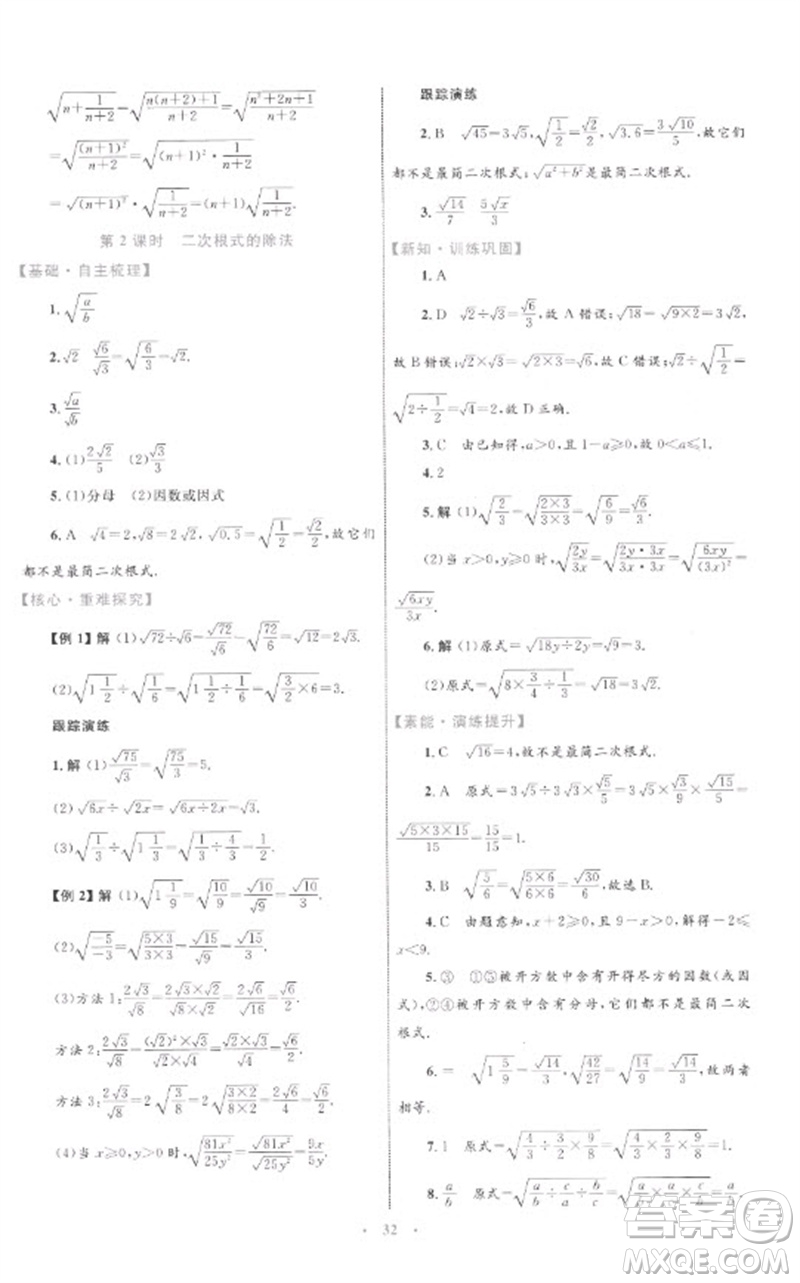 √(n+1/(n+2))=√((n(n+2)+1)/(n+2))=√((n²+2n+1)/(n+2))
=√((n+1)²/(n+2))=√((n+1)²·1/(n+2))
=√(n+1)²·√(1/(n+2))=(n+1)√(1/(n+2)).
第2课时 二次根式的除法
【基础·自主梳理】
1.√(a/b)
2.√2 √6/√3=√(6/3)=√2.
3.√a/√b
4.(1)2√2/5 (2)√3/3
5.(1)分母 (2)因数或因式
6.A √4=2,√8=2√2,√0.5=√(1/2)=√2/2,故它们
都不是最简二次根式.
【核心·重难探究】
【例1】解 (1)√72÷√6=√72/√6=√(72/6)=√12=2√3.
(2)√(1 1/2)÷√(1/6)=√(1 1/2÷1/6)=√(3/2×6)=3.
跟踪演练
1.解 (1)√75/√3=√(75/3)=5.
(2)√6x÷√2x=√(6x÷2x)=√3.
(3)√(1/3)÷√(1 1/3)=√(1/3÷4/3)=√(1/4)=1/2.
【例2】解 (1)√(1 1/9)=√(10/9)=√10/√9=√10/3.
(2)√(-5/-3)=√((5×3)/(3×3))=√15/√9=√15/3.
(3)方法1:2√3/√8=2√3/2√2=√3/√2=√6/2.
方法2:2√3/√8=(2√3×√2)/((√2)²×√2×√2)=2√6/4=√6/2.
方法3:2√3/√8=2√(3/8)=2√((3×2)/(8×2))=2√6/√16=√6/2.
(4)当x≥0,y>0时,√(81x²/25y²)=√81x²/√25y²=9x/5y.
跟踪演练
2.B √45=3√5,√(1/2)=√2/2,√3.6=3√10/5,故它们
都不是最简二次根式;√(a²+b²)是最简二次根式.
3.√14/7 5√x/x
【新知·训练巩固】
1.A
2.D √2÷√3=√6/3,故A错误;√18=√(9×2)=3√2,
故B错误;√2×√3=√(2×3)=√6,故C错误;√2÷√(1/2)=
√(2÷1/2)=√4=2,故D正确.
3.C 由已知得,a>0,且1-a≥0,故0<a≤1.
4.2
5.解 (1)√(2/3)=√((2×3)/(3×3))=√(6/9)=√6/√9=√6/3.
(2)当x>0,y≥0时,√(2y/3x)=√((2y·3x)/(3x·3x))=√(6xy/(3x)²)=
√6xy/3x.
6.解 (1)原式=√(18y÷2y)=√9=3.
(2)原式=√(8×3/4÷1/3)=√18=3√2.
【素能·演练提升】
1.C √16=4,故不是最简二次根式.
2.A 原式=3√5÷3√5×√5/√9=3√5×√3/9×√5/√3=
√(5×3×15)/15=15/15=1.
3.B √(5/6)=√((5×6)/(6×6))=√30/6=√30/6,故选B.
4.C 由题意知,x+2≥0,且9-x>0,解得-2≤
x<9.
5.③ ①⑤被开方数中含有开得尽方的因数(或因
式),②④被开方数中含有分母,它们都不是最简二次
根式.
6.= √(1 5/9)=√14/3,√42/√27=√(14/9)=√14/3,故两者
相等.
7.1 原式=√(4/3÷3/2×9/8)=√(4/3×2/3×9/8)=1.
8.a/b 原式=√(a/b÷b/c×a/c)=√(a/b×c/b×a/c)=a/b.
·32·
答案卷
MXQE.COM